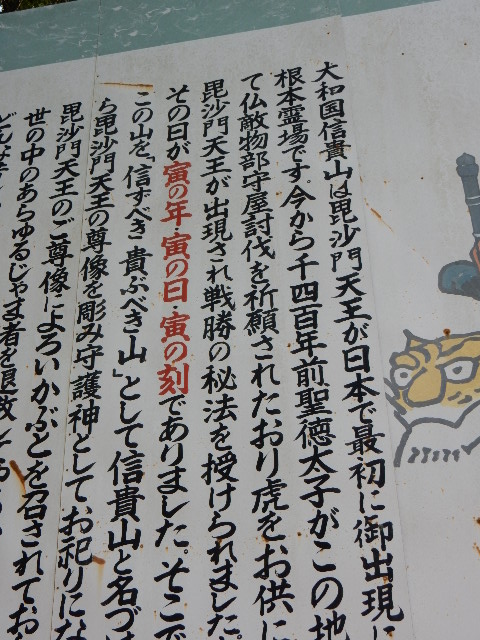 大和国信貴山は毘沙門天王が日本で最初に御出現に
根本霊場です。今から千四百年前聖徳太子がこの地
て仏敵物部守屋討伐を祈願されたおり虎をお供に
毘沙門天王が出現され戦勝の秘法を授けられました。
その日が寅の年・寅の日・寅の刻でありました。そこで
この山を「信ずべき貴ぶべき山」として信貴山と名づけ
ら毘沙門天王の尊像を彫み守護神としてお祀りにな
毘沙門天王のご尊像によろいかぶとを召されてお
世の中のあらゆるじゃま者を退散し